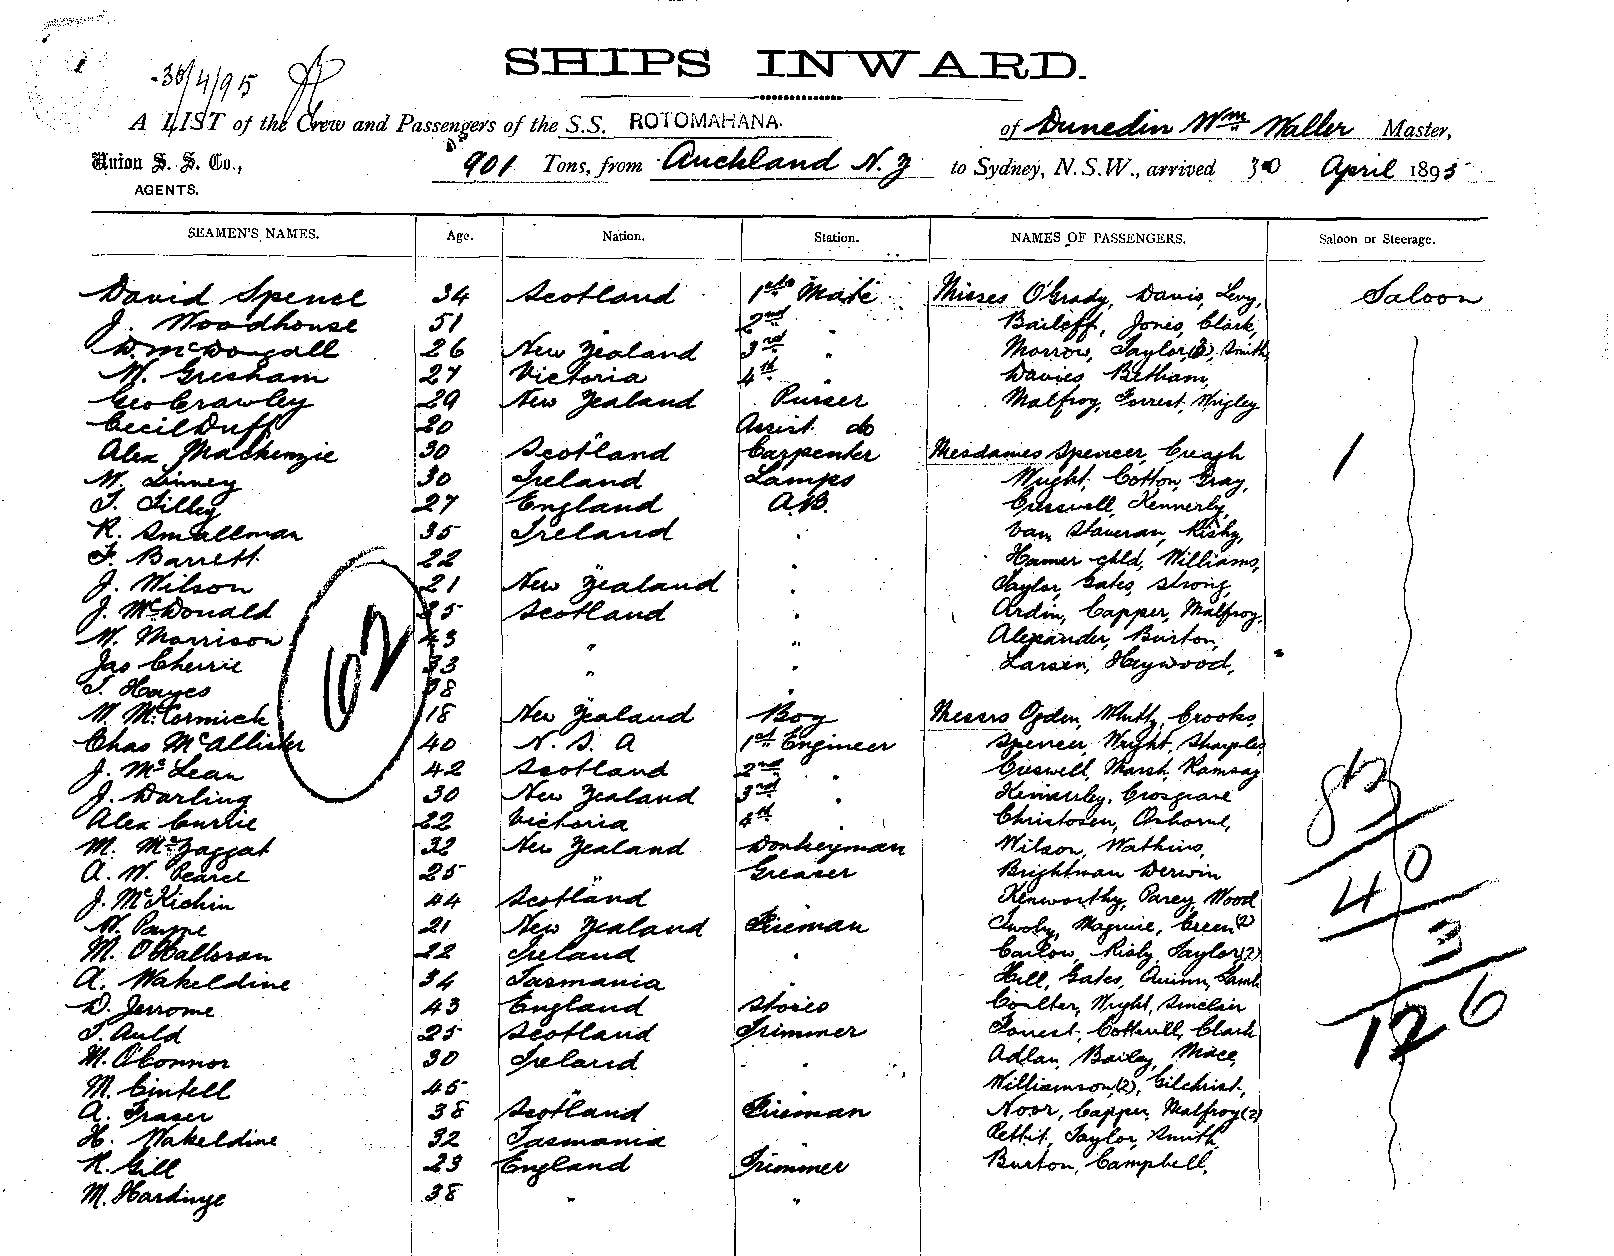 SHIPS INWARD.
30/4/95
A LIST of the Crew and Passengers of the S.S. ROTOMAHANA. of Dunedin Wm Waller Master,
Union S. S. Co., 901 Tons, from Auckland N.Z to Sydney, N.S.W., arrived 30 April 1895
AGENTS.
SEAMEN'S NAMES. Age. Nation. Station. NAMES OF PASSENGERS. Saloon or Steerage.
David Spence 34 Scotland 1st Mate Misses O'Grady, Davis, Levy, Saloon
J. Woodhouse 51 " 2nd " Baileff, Jones, Clark,
D. McDougall 26 New Zealand 3rd " Morrow, Taylor, Smith
W. Gresham 27 Victoria 4th Davies Betham,
Geo Crawley 29 New Zealand Purser Malfroy, Forrest, Wrigley
Cecil Duff 20 " Assist. do
Alex Mackenzie 30 Scotland Carpenter Mesdames Spencer, Creagh 1
W. Linney 30 Ireland Lamps Wright, Cotton, Gray,
T. Tilley 27 England A.B. Cresswell, Kennerly,
R. Smallman 35 Ireland " Van Staveran, Risby,
F. Barrett 22 " " Hamer chld, Williams,
J. Wilson 21 New Zealand " Taylor, Gates, Strong,
J. McDonald 25 Scotland " Ardin, Capper, Malfroy,
W. Morrison 43 " " Alexander, Burton,
Jas Cherrie 33 " " Larsen, Heywood,
T. Hayes 38 " "
62
W. McCormick 18 New Zealand Boy Messrs Ogden, Crooks,
Chas McAllister 40 N. S. A 1st Engineer Spencer, Wright, Sharples
J. McLean 42 Scotland 2nd " Criswell, Marsh, Ramsay
J. Darling 30 New Zealand 3rd " Crosgrave
Alex Currie 22 Victoria 4th Christosen, Osborne,
M. McTaggat 32 New Zealand Donkeyman Wilson, Watkins,
A. W. Pearce 25 " Greaser Brightman Derwin
J. McKichin 44 Scotland Kenworthy, Parey, Wood
W. Payne 21 New Zealand Fireman Maguire, Green (2)
M. O'Halloran 22 Ireland " Carlow, Risby, Taylor (2)
A. Wakeldine 34 Tasmania Hill, Gates, Quinn, Lamb
D. Jerrome 43 England Stores Coulter, Wright, Sinclair
T. Auld 25 Scotland Trimmer Forrest, Cotterill, Clark
M. O'Connor 30 Ireland " Adlan, Bailey, Mace,
M. Cintell 45 " " Williamson (2), Gilchrist,
A. Fraser 38 Scotland Fireman Noor, Capper, Malfroy (2)
H. Wakeldine 32 Tasmania Pettit, Taylor, Smith
R. Gill 23 England Trimmer Burton, Campbell,
M. Hardinge 38 " "
83
40
3
126